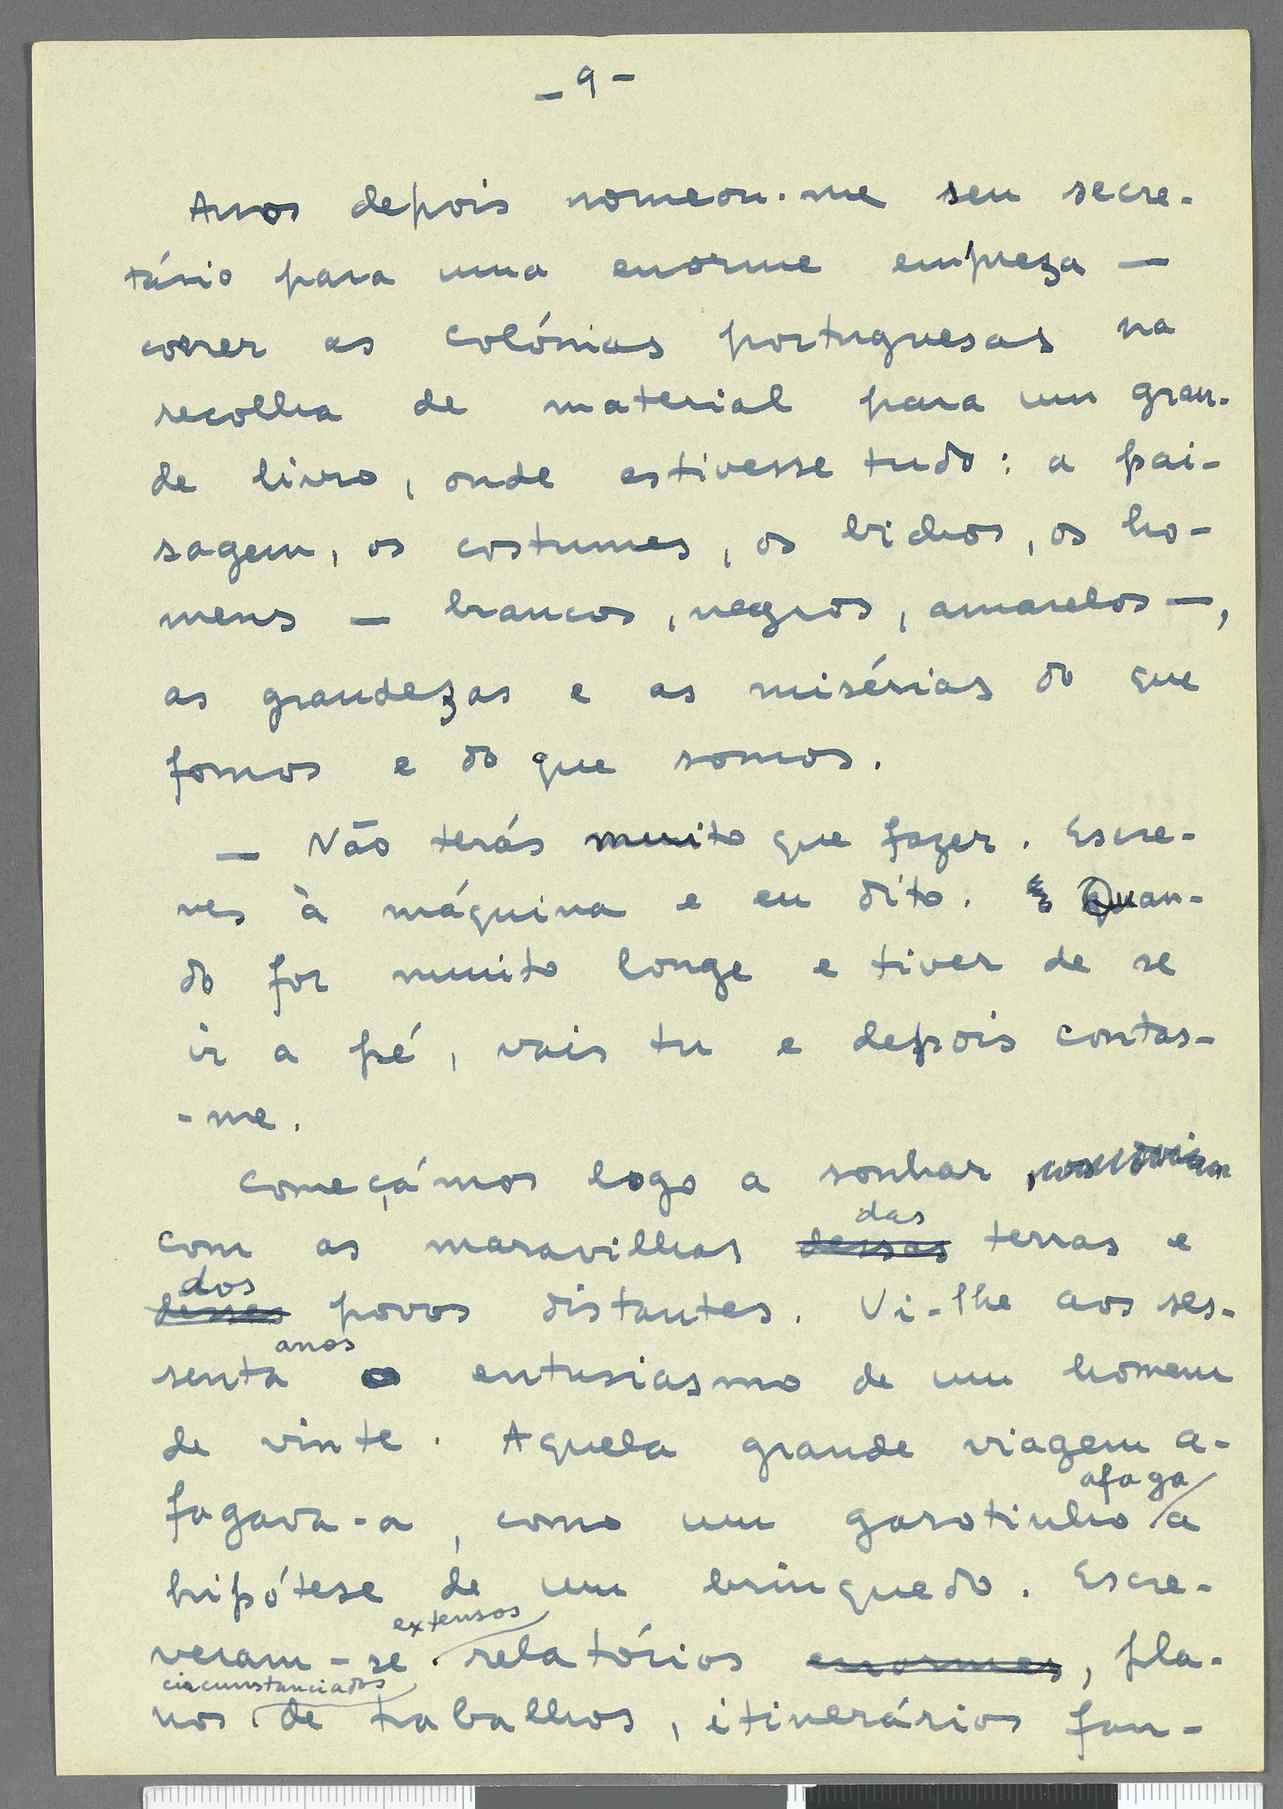 - 9 -
Anos depois nomeou-me seu secre-
tário para uma enorme empreza —
correr as colónias portuguesas na
recolha de material para um gran-
de livro, onde estivesse tudo: a pai-
sagem, os costumes, os bichos, os ho-
mens — brancos, negros, amarelos —,
as grandezas e as misérias do que
fomos e do que somos.
— Não terás muito que fazer. Escre-
ves à máquina e eu dito. Quan-
do for muito longe e tiver de se
ir a pé, vais tu e depois contas-
-me.
Começámos logo a sonhar
das
com as maravilhas dessas terras e
dos
desses povos distantes. Vi-lhe aos ses-
anos
senta o entusiasmo de um homem
de vinte. Aquela grande viagem a-
afaga
fagava-a, como um garotinho a
hipótese de um brinquedo. Escre-
extensos
veram-se relatórios enormes, pla-
circunstanciados
nos de trabalhos, itinerários fan-